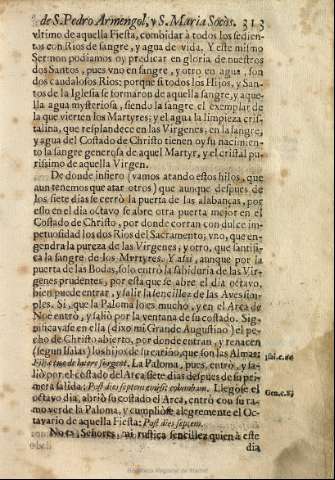 de S. Pedro Armengol, y S. Maria Socòs. 313
vltimo de aquella Fiesta, combidar à todos los sedien-
tos con Rios de sangre, y agua de vida. Y este mismo
Sermon podiamos oy predicar en gloria de nuestros
dos Santos, pues vno en sangre, y otro en agua, son
dos caudalosos Rios; porque si todos los Hijos, y San-
tos de la Iglesia se formaron de aquella sangre, y aque-
lla agua mysteriosa, siendo la sangre el exemplar de
la que vierten los Martyres; y el agua la limpieza cris-
talina, que resplandece en las Virgenes; en la sangre,
y agua del Costado de Christo tienen oy su nacimien-
to la sangre generosa de aquel Martyr, y el cristal pu-
rissimo de aquella Virgen.
De donde infiero (vamos atando estos hilos, que
aun tenemos que atar otros) que aunque despues de
los siete dias se cerrò la puerta de las alabanças, por
esso en el dia octavo se abre otra puerta mejor en el
Costado de Christo, por donde corran con dulce im-
petuosidad los dos Rios del Sacramento; vno, que en-
gendra la pureza de las Virgenes; y otro, que santifi-
ca la sangre de los Martyres. Y assi, aunque por la
puerta de las Bodas, solo entrò la sabiduria de las Vir-
genes prudentes, por esta que se abre el dia octavo,
bien puede entrar, y salir la sencillez de las Aves sim-
ples. Si, que la Paloma lo es mucho, y en el Arca de
Noe entrò, y saliò por la ventana de su costado. Sig-
nificavase en ella (dixo mi Grande Augustino) el pe-
cho de Christo abierto, por donde entran, y renacen
(segun Isaias) los hijos de su cariño, que son las Almas:
surgent. La Paloma, pues, entrò, y sa-
liò por el costado del Arca siete dias despues de su pri-
mera salida: Post dies septem emisit columbam. Llegòse el
octavo dia, abriò su costado el Arca, entrò con su ra-
mo verde la Paloma, y cumpliòse alegremente el Oc-
tavario de aquella Fiesta: Post dies septem.
No es, Señores, mi rustica sencillez quien à este
dia
Isai.c.60
Gen.c.8.
Biblioteca Regional de Madrid